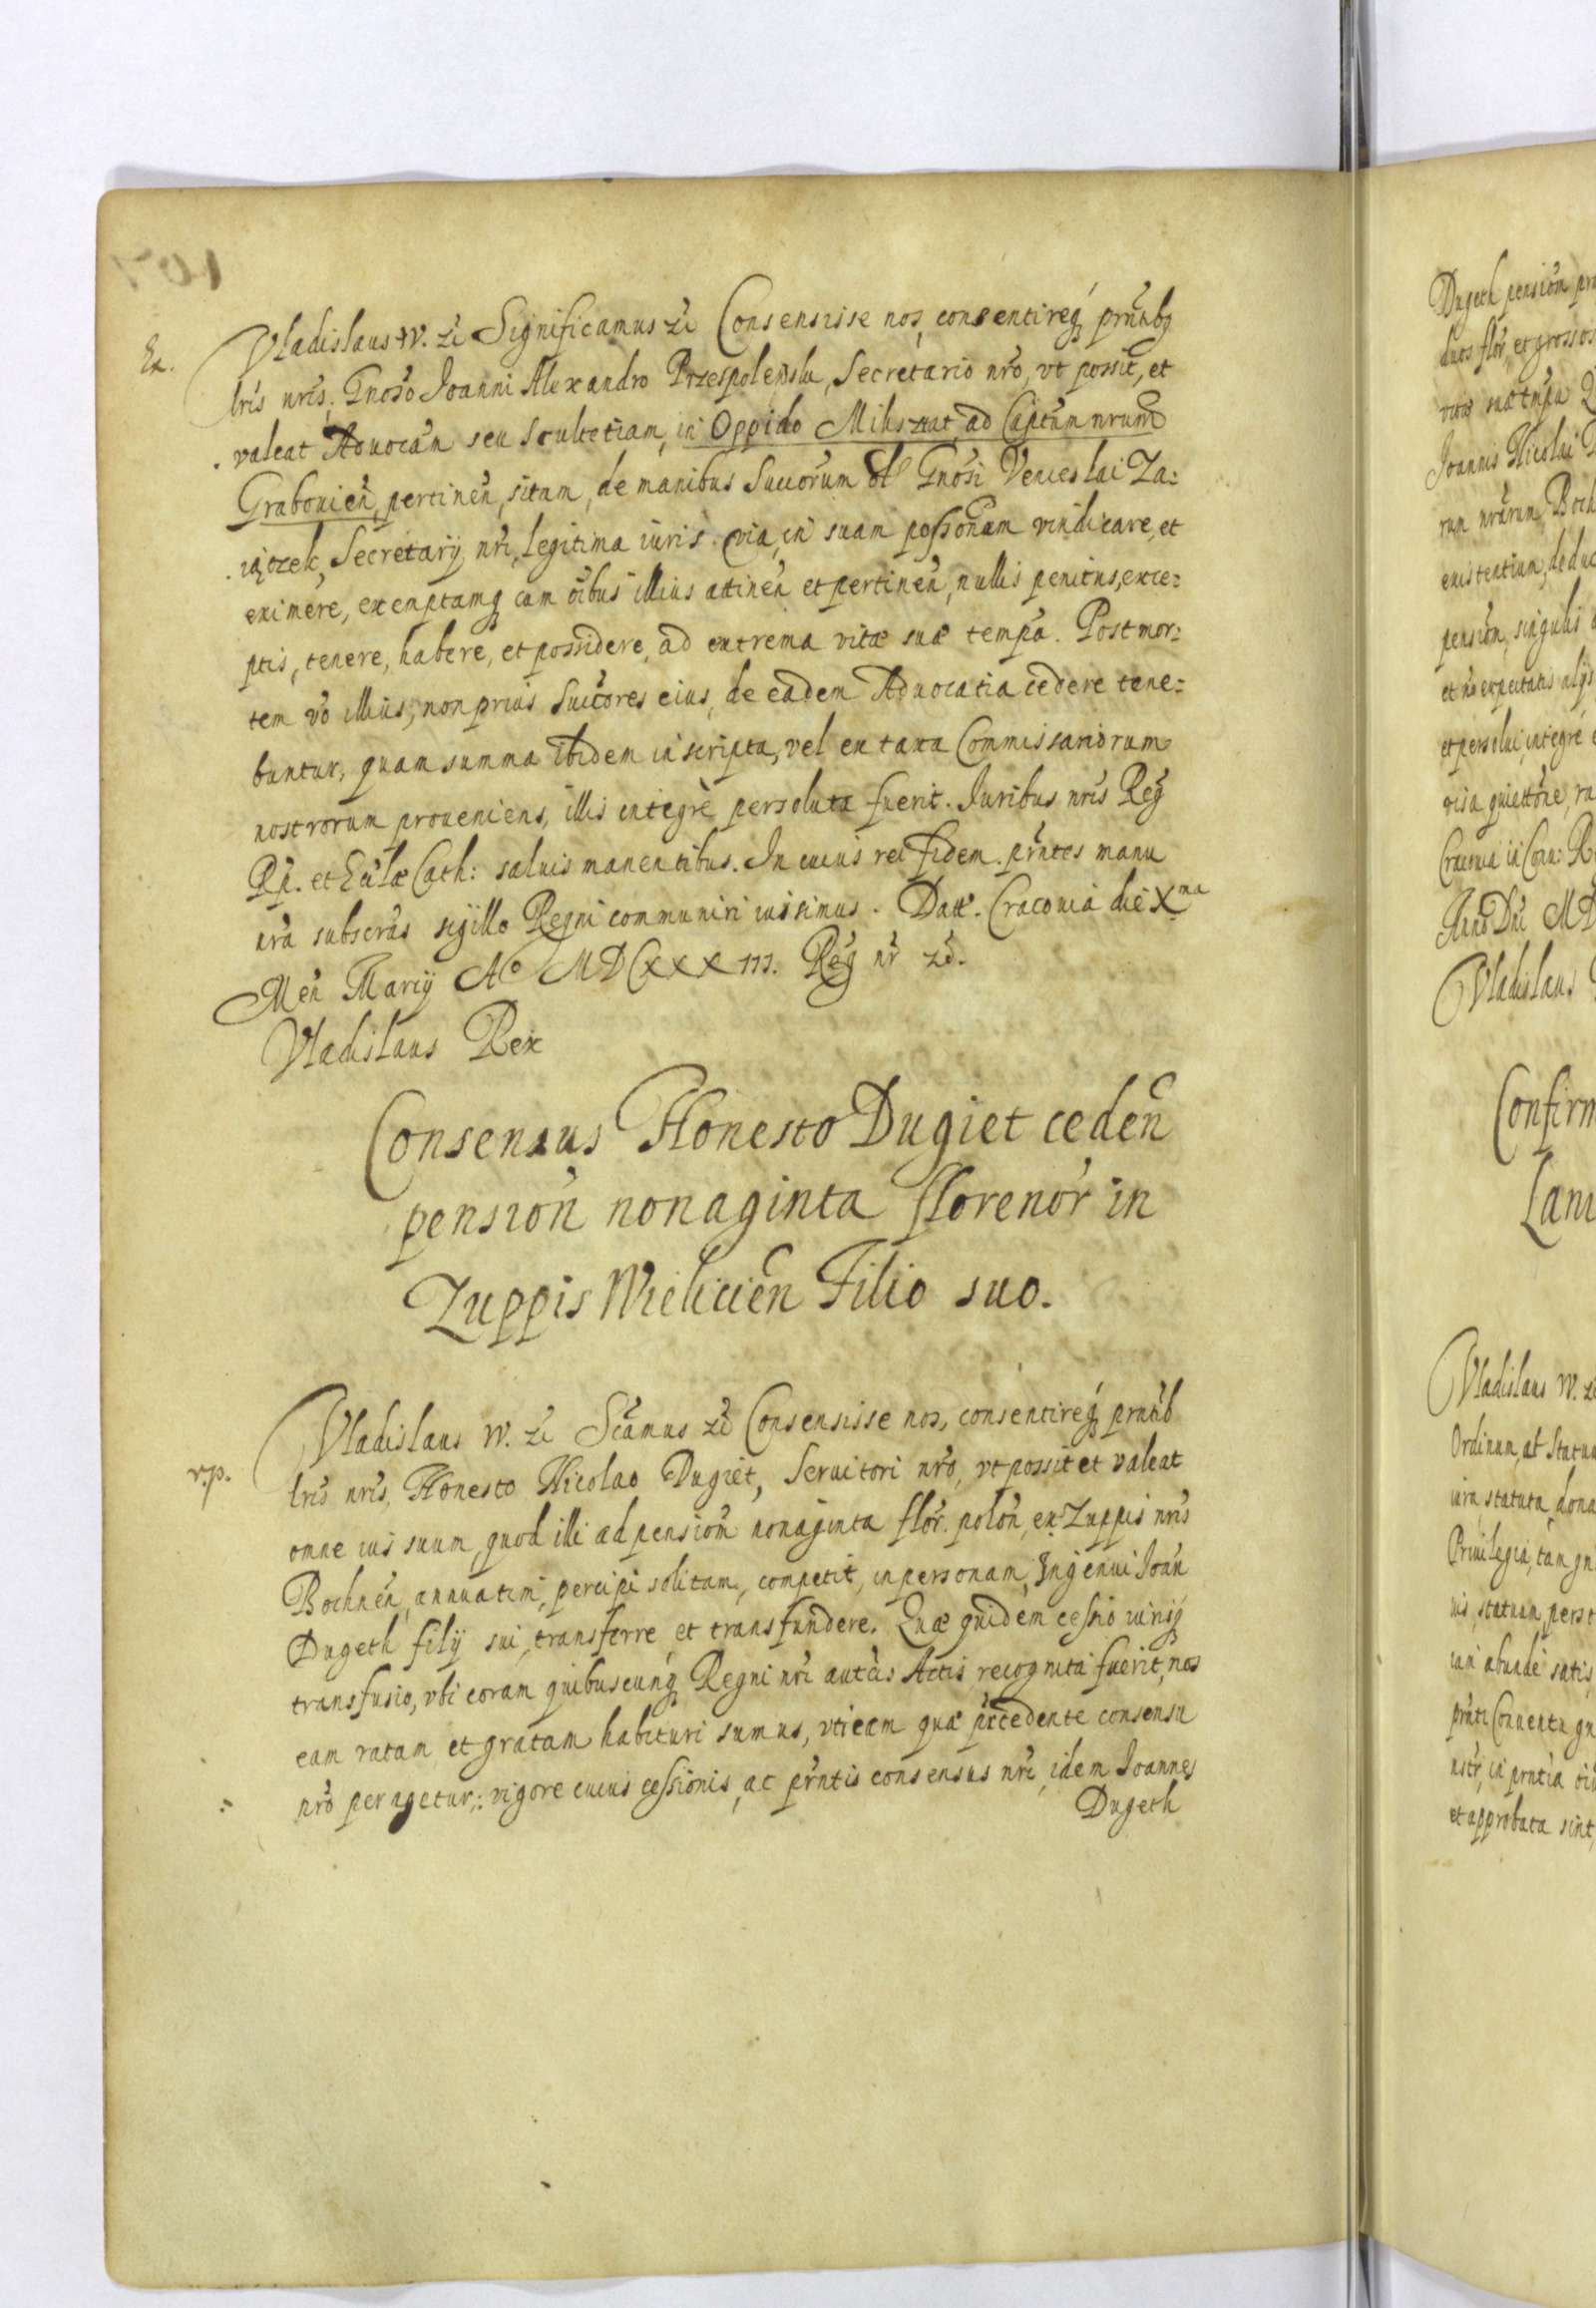 Ex.
Vladislaus IV. zc Significamus zc Consensisse nos, consentireq; prntibq
lris nris, Gnoso Ioanni Alexandro Przespolensku, Secretario nro, vt possit, et
valeat Aduocam seu Scultetiam, in Oppido Miksztat, ad Captum nrum
Grabouien, pertinen, sitam, de manibus Succorum ol Gnosi Venceslai Za:
iączek, Secretarij nri, legitima iuris via, in suam possonem vindicare, et
eximere, exemptamq; cum oibus illius attinen et pertinen, nullis penitus, exce:
ptis, tenere, habere, et possidere, ad extrema vitæ suæ tempa. Post mor:
tem vo illius, non prius Succores eius, de eadem Aduocatia cedere tene:
buntur, quam summa ibidem inscripta, vel ex taxa Commissariorum
nostrorum proueniens, illis integrè persoluta fuerit. Iuribus nris Reg
Rp. et Ecclæ Cath: saluis manentibus. In cuius rei fidem prntes manu
nra subscras sigillo Regni communiri iussimus. Datt. Cracouiæ die Xma
Men Marty Ao MDCXXXIII. Reg nr zc.
Vladislaus Rex
Consensus Honesto Dugiet ceden
pension nonaginta florenor in
Zuppis Wielicien Filio suo.
r.p.
Vladislaus IV. zc Scamus zc Consensisse nos, consentireq; prntib
lris nris, Honesto Nicolao Dugiet, Seruitori nro, vt possit et valeat
omne ius suum, quod illi ad pension nonaginta flor. polon, ex Zuppis nris
Bochnen, annuatim, percipi solitam, competit, in personam, Ingenui Ioan
Dugeth filij sui, transferre et transfundere. Quæ quidem cessio iurisq;
transfusio, vbi coram quibuscunq; Regni nri autcis Actis recognita fuerit, nos
eam ratam et gratam habituri sumus, vti eam quæ præcedente consensu
nro peragetur: vigore cuius cessionis, ac prntis consensus nri, idem Ioannes
Dugeth
Dugeth pension
duos flor, et grossos
Joannis Nicolai
existentium, deduc
pension, singulis
et persolui, integrè
Anno Dni MD
Vladislaus
Confirm
Lani
Vladislaus IV. zc
Ordinum, at Statu
iura, statuta, dona
Priuilegia, tam
et approbata sint,